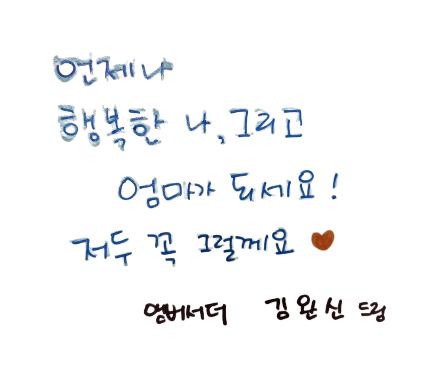 언제나
행복한 나, 그리고
엄마가 되세요!
저두 꼭 그럴께요 ♥
앰버서더 김완신 드림